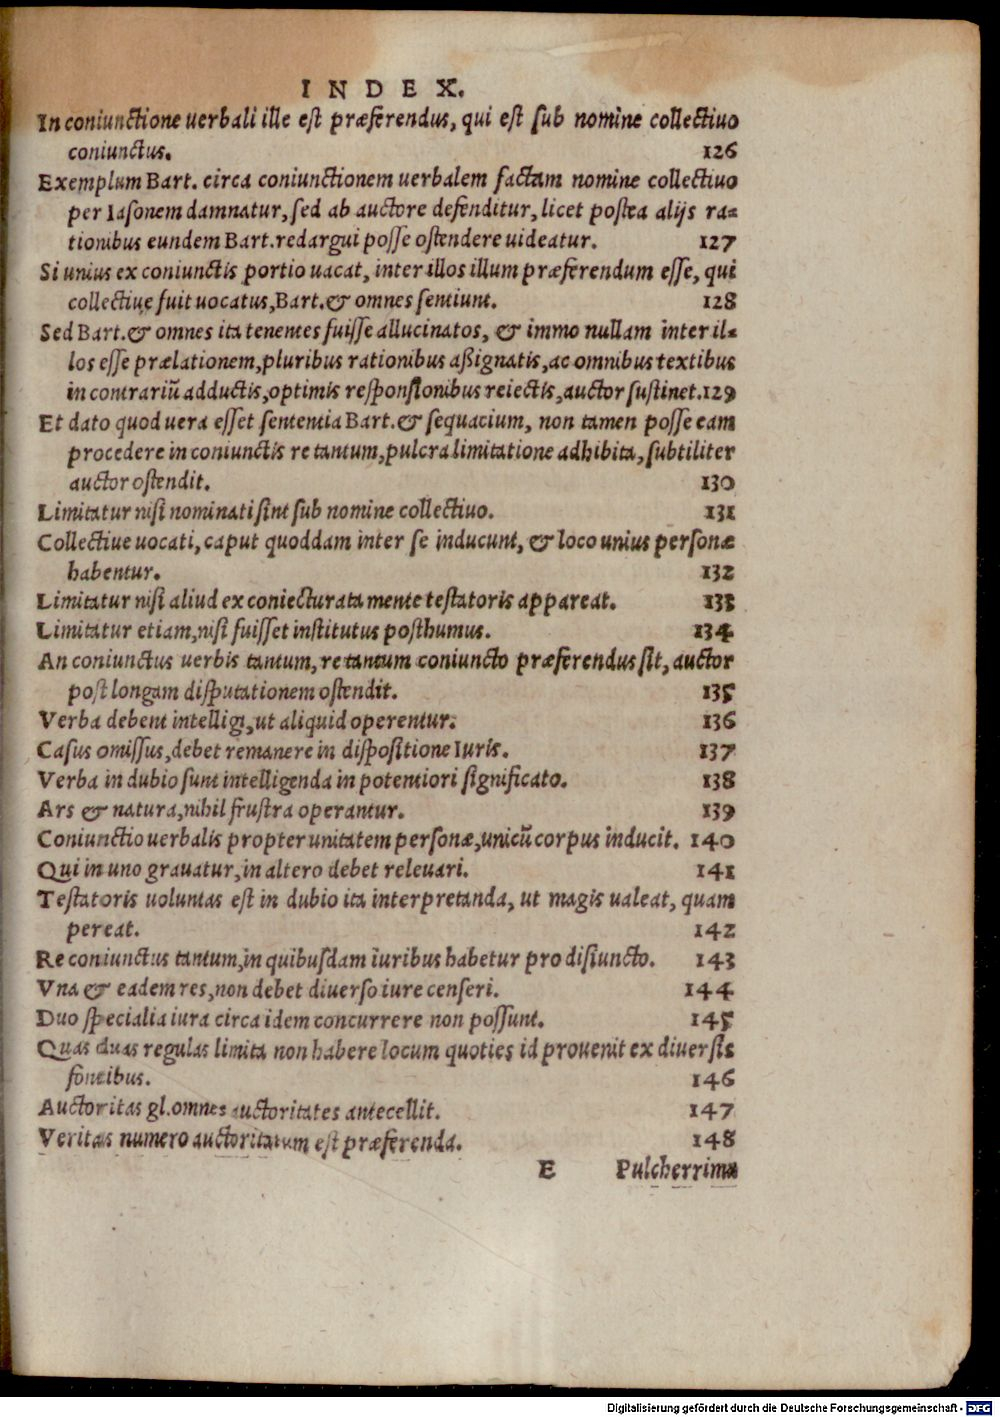 INDEX.
In coniunctione uerbali ille est præferendus, qui est sub nomine collectiuo
coniunctus. 126
Exemplum Bart. circa coniunctionem uerbalem factam nomine collectiuo
per Iasonem damnatur, sed ab auctore defenditur, licet postea alijs ra-
tionibus eundem Bart. redargui posse ostendere uideatur. 127
Si unius ex coniunctis portio uacat, inter illos illum præferendum esse, qui
collectiue fuit uocatus, Bart. & omnes sentiunt. 128
Sed Bart. & omnes ita tenentes fuisse allucinatos, & immo nullam inter il-
los esse prælationem, pluribus rationibus aßignatis, ac omnibus textibus
in contrariū adductis, optimis responsionibus reiectis, auctor sustinet. 129
Et dato quod uera esset sententia Bart. & sequacium, non tamen posse eam
procedere in coniunctis re tantum, pulcra limitatione adhibita, subtiliter
auctor ostendit. 130
Limitatur nisi nominati sint sub nomine collectiuo. 131
Collectiue uocati, caput quoddam inter se inducunt, & loco unius personæ
habentur. 132
Limitatur nisi aliud ex coniecturata mente testatoris appareat. 133
Limitatur etiam, nisi fuisset institutus posthumus. 134
An coniunctus uerbis tantum, re tantum coniuncto præferendus sit, auctor
post longam disputationem ostendit. 135
Verba debent intelligi, ut aliquid operentur. 136
Casus omissus, debet remanere in dispositione Iuris. 137
Verba in dubio sunt intelligenda in potentiori significato. 138
Ars & natura, nihil frustra operantur. 139
Coniunctio uerbalis propter unitatem personæ, unicū corpus inducit. 140
Qui in uno grauatur, in altero debet releuari. 141
Testatoris uoluntas est in dubio ita interpretanda, ut magis ualeat, quam
pereat. 142
Re coniunctus tantum, in quibusdam iuribus habetur pro disiuncto. 143
Vna & eadem res, non debet diuerso iure censeri. 144
Duo specialia iura circa idem concurrere non possunt. 145
Quas duas regulas limita non habere locum quoties id prouenit ex diuersis
fontibus. 146
Auctoritas gl. omnes auctoritates antecellit. 147
Veritas numero auctoritatum est præferenda. 148
E Pulcherrima
Digitalisierung gefördert durch die Deutsche Forschungsgemeinschaft - DFG